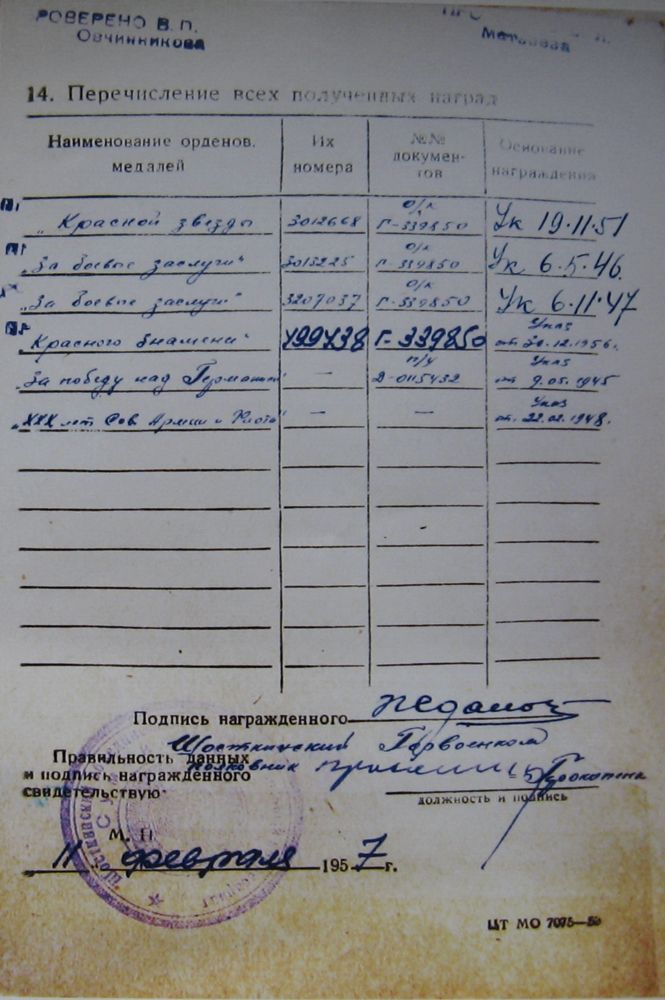 РОВЕРЕНО В. П.
Овчинникова
14. Перечисление всех полученных наград
Наименование орденов, медалей
Их номера
№№ документов
Основание награждения
о/к
„Красной звезды" 3012668 Г-339850 Ук 19.11.51
о/к
„За боевые заслуги" 3015225 Г-339850 Ук 6.5.46.
о/к
„За боевые заслуги" 3207037 Г-339850 Ук 6.11.47
Указ
„Красного Знамени" 499438 Г-339850 от 30.12.1956г.
п/у Указ
„За победу над Германией" — Д-0115432 от 9.05.1945
Указ
„XXX лет Сов Армии и Флота" — — от 22.02.1948г.
Подпись награжденного
Шосткинский Горвоенком
Правильность данных
полковник
и подпись награжденного
свидетельствую:
должность и подпись
М. П.
11 февраля 1957 г.
ЦТ МО 7075—50